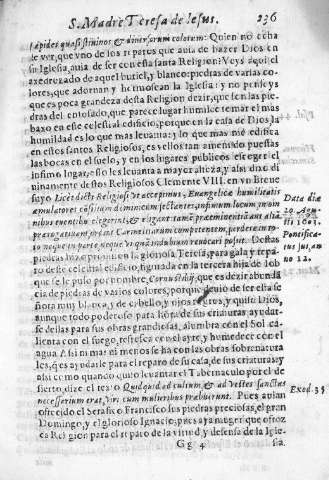 S. Madre Teresa de Iesus. 236
lapides quasi stininos & diuersorum colorum: Quien no echa
de ver, que vno de los reparos que auia de hazer Dios en
su Iglesia, auia de ser con esta santa Religion? Veys aqui el
axedrezado de aquel buriel, y blanco: piedras de varias co-
lores, que adornan y hermosean la Iglesia: y no penseys
que es poca grandeza desta Religion dezir, que son las pie-
dras del enlosado, que parece lugar humilde tomar el mas
baxo en este celestial edificio, porque en la casa de Dios la
humildad es lo que mas leuanta: y lo que mas nos edifica
en estos santos Religiosos, es vellos tan amenudo puestas
las bocas en el suelo, y en los lugares publicos escoger el
infimo lugar, esto les leuanta a mayor alteza, y assi dixo di
uinamente destos Religiosos Clemente VIII. en vn Breue
suyo. Licet dicti Religiosi vt acceprimus, Euangelicæ humilitatis
amulatores eximium dominicum sectantes, infimum locum, in om
nibus euentibus elegerint, & eligant tamen præeminentiam aut aliã
prærogatiuam
neque in parte, neque vnquam reuocari possit. Destas
piedras haze prouision la gloriosa Teresa, para gala y repa-
ro deste celestial edificio, figurada en la tercera hija de Iob
que se le puso por nombre, Cornustibij, que es dezir abunda
cia de piedras de varios colores, porque
ñora muy blanca, y de cabello, y ojos negros, y quiso Dios,
aunque todo poderoso para honra de sus criaturas ayudar-
se dellas para sus obras grandiosas, alumbra con el Sol ca-
lienta con el fuego, refresca con el ayre, y humedece con el
agua. Assi ni mas ni menos se ha con las obras sobrenatura
les, q̃ es ayudarle para el reparo de su casa, de sus criaturas: y
assi como quando quiso leuantar el Tabernaculo por el de-
sierto, dize el texto Quidquid ad cultum, & ad vestes sanctas
necessarium erat, viri cum mulieribus præbuerunt. Pues auian
ofrecido el Serafico Francisco sus piedras preciosas, el gran
Domingo, y el glorioso Ignacio; pues aya muger que ofrez
ca Religion para el reparo de la virtud, y defensa de la Igle-
Gg 4 sia.
Data diæ
20. Agu-
sti 1603.
Pontifica-
tus sui, an
no 12.
Exod. 35